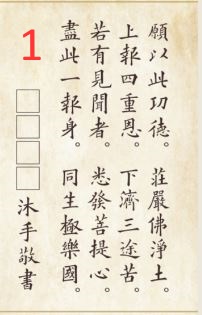 願以此功德。莊嚴佛淨土。
上報四重恩。下濟三途苦。
若有見聞者。悉發菩提心。
盡此一報身。同生極樂國。
1
□□□□沐手敬書